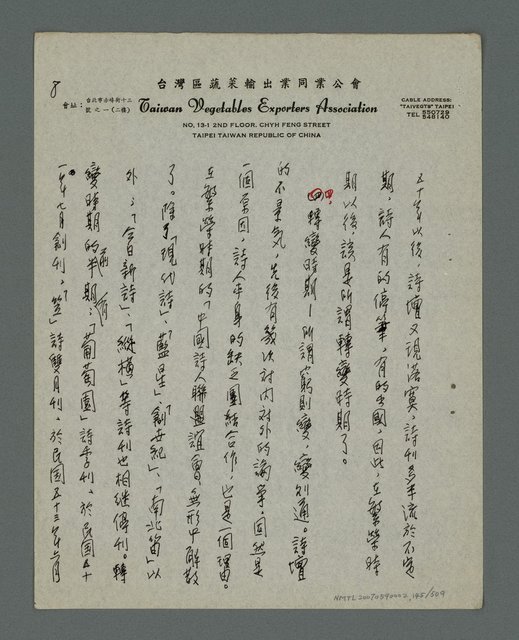 8
台灣區蔬菜輸出業同業公會
會址：台北市赤峰街十三號之一(二樓)
Taiwan Vegetables Exporters Association
NO, 13-1 2ND FLOOR, CHYH FENG STREET
TAIPEI TAIWAN REPUBLIC OF CHINA
CABLE ADDRESS:
"TAIVEGTB" TAIPEI
TEL 550729
546140
五十年以後，詩壇又現落寞，詩刊多半流於不定
期，詩人有的停筆，有的出國，因此，在繁榮時
期以後該是所謂轉變時期了。
四、轉變時期—所謂窮則變，變則通。詩壇
的不景氣，先後有幾次對內對外的論爭，固然是
一個原因，詩人本身的缺乏團結合作，也是一個理由。
在繁榮時期的「中國詩人聯盟誼會」無形中解散
了。除了「現代詩」、「藍星」、「創世紀」、「南北笛」以
外，「今日新詩」、「縱橫」等詩刊也相繼停刊。轉
變時期的前半期，有「葡萄園」詩季刊，於民國五十
一年七月創刊。「笠」詩雙月刊，於民國五十三年六月
NMTL20070590002_145/509